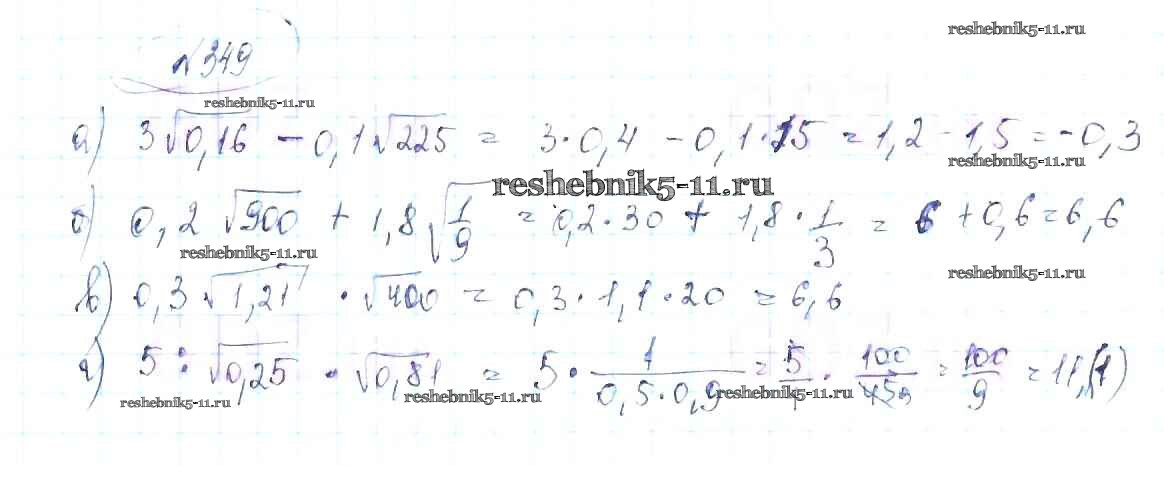 reshebnik5-11.ru
№349
reshebnik5-11.ru
а) 3√0,16 - 0,1√225 = 3·0,4 - 0,1·15 = 1,2 - 1,5 = -0,3
reshebnik5-11.ru
reshebnik5-11.ru
б) 0,2√900 + 1,8√1/9 = 0,2·30 + 1,8·1/3 = 6 + 0,6 = 6,6
reshebnik5-11.ru
reshebnik5-11.ru
в) 0,3√1,21 · √400 = 0,3·1,1·20 = 6,6
г) 5 : √0,25 · √0,81 = 5 · 1/(0,5·0,9) = 5/1 · 100/45 = 100/9 = 11,(1)
reshebnik5-11.ru
reshebnik5-11.ru
reshebnik5-11.ru